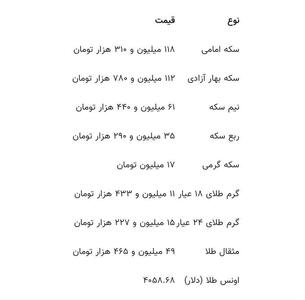 نوع قیمت
سکه امامی ۱۱۸ میلیون و ۳۱۰ هزار تومان
سکه بهار آزادی ۱۱۲ میلیون و ۷۸۰ هزار تومان
نیم سکه ۶۱ میلیون و ۴۴۰ هزار تومان
ربع سکه ۳۵ میلیون و ۲۹۰ هزار تومان
سکه گرمی ۱۷ میلیون تومان
گرم طلای ۱۸ عیار ۱۱ میلیون و ۴۳۳ هزار تومان
گرم طلای ۲۴ عیار ۱۵ میلیون و ۲۲۷ هزار تومان
مثقال طلا ۴۹ میلیون و ۴۶۵ هزار تومان
اونس طلا (دلار) ۴۰۵۸.۶۸